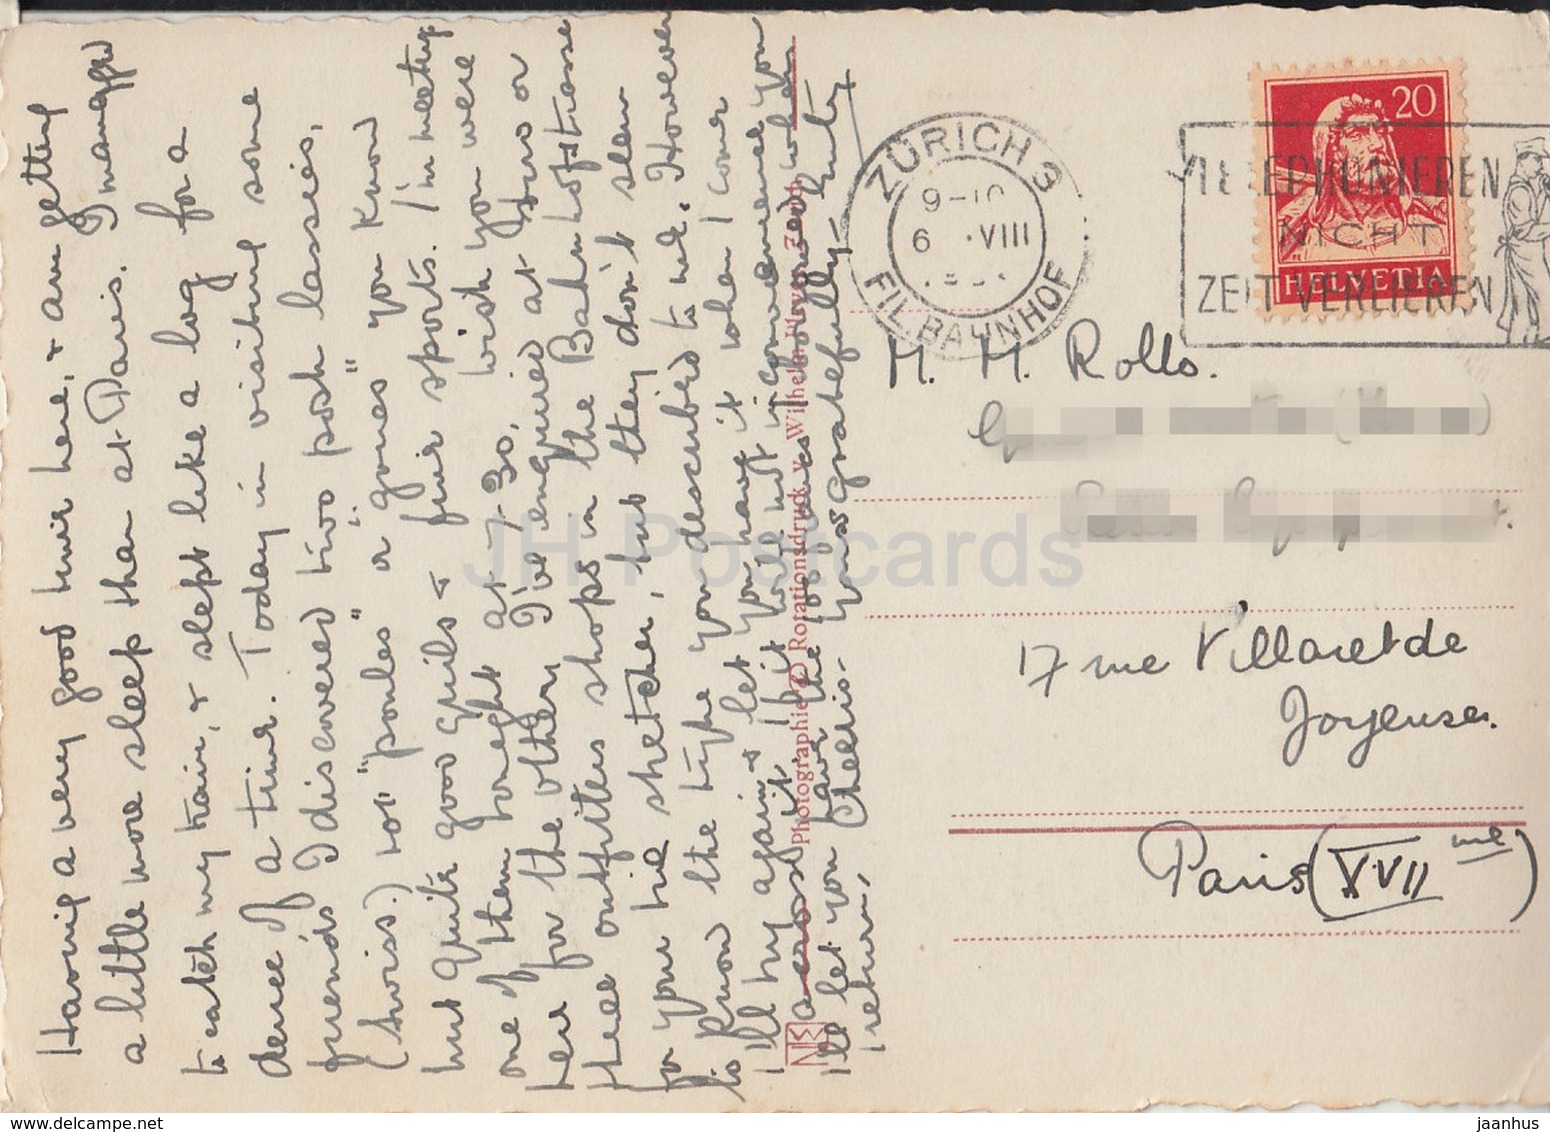 Having a very good time here, & am getting
a little more sleep than at Paris. I managed
to catch my train, & slept like a log for a
deuce of a time. Today in visiting some
friends I discovered two posh lassies,
(Swiss.) not "poules" "a gones" you know
but quite good girls & fair sports. I'm meeting
one of them tonight at 7-30, wish you were
here for the other, I've enquired at two or
three outfitters shops in the Bahnhofstrasse
for your the sketcher, but they don't seem
to know the type you described to me. However
I'll try again & let you have it when I come
across it. I hit will not inconvenience you
I'll let you have the when
I return, Cheerio. Yours gratefully -
Photographie Rotationsdruck v. Wilhelm Pleyer, Zürich
ZÜRICH 3
9-10
6. VIII
FIL. BAHNHOF
TELEPHONIEREN
NICHT
ZEIT VERLIEREN
20
HELVETIA
M. M. Rollo.
17 rue Villaret de
Joyeuse.
Paris (XVII me)
JH Postcards
www.jaanhus.com
jaanhus